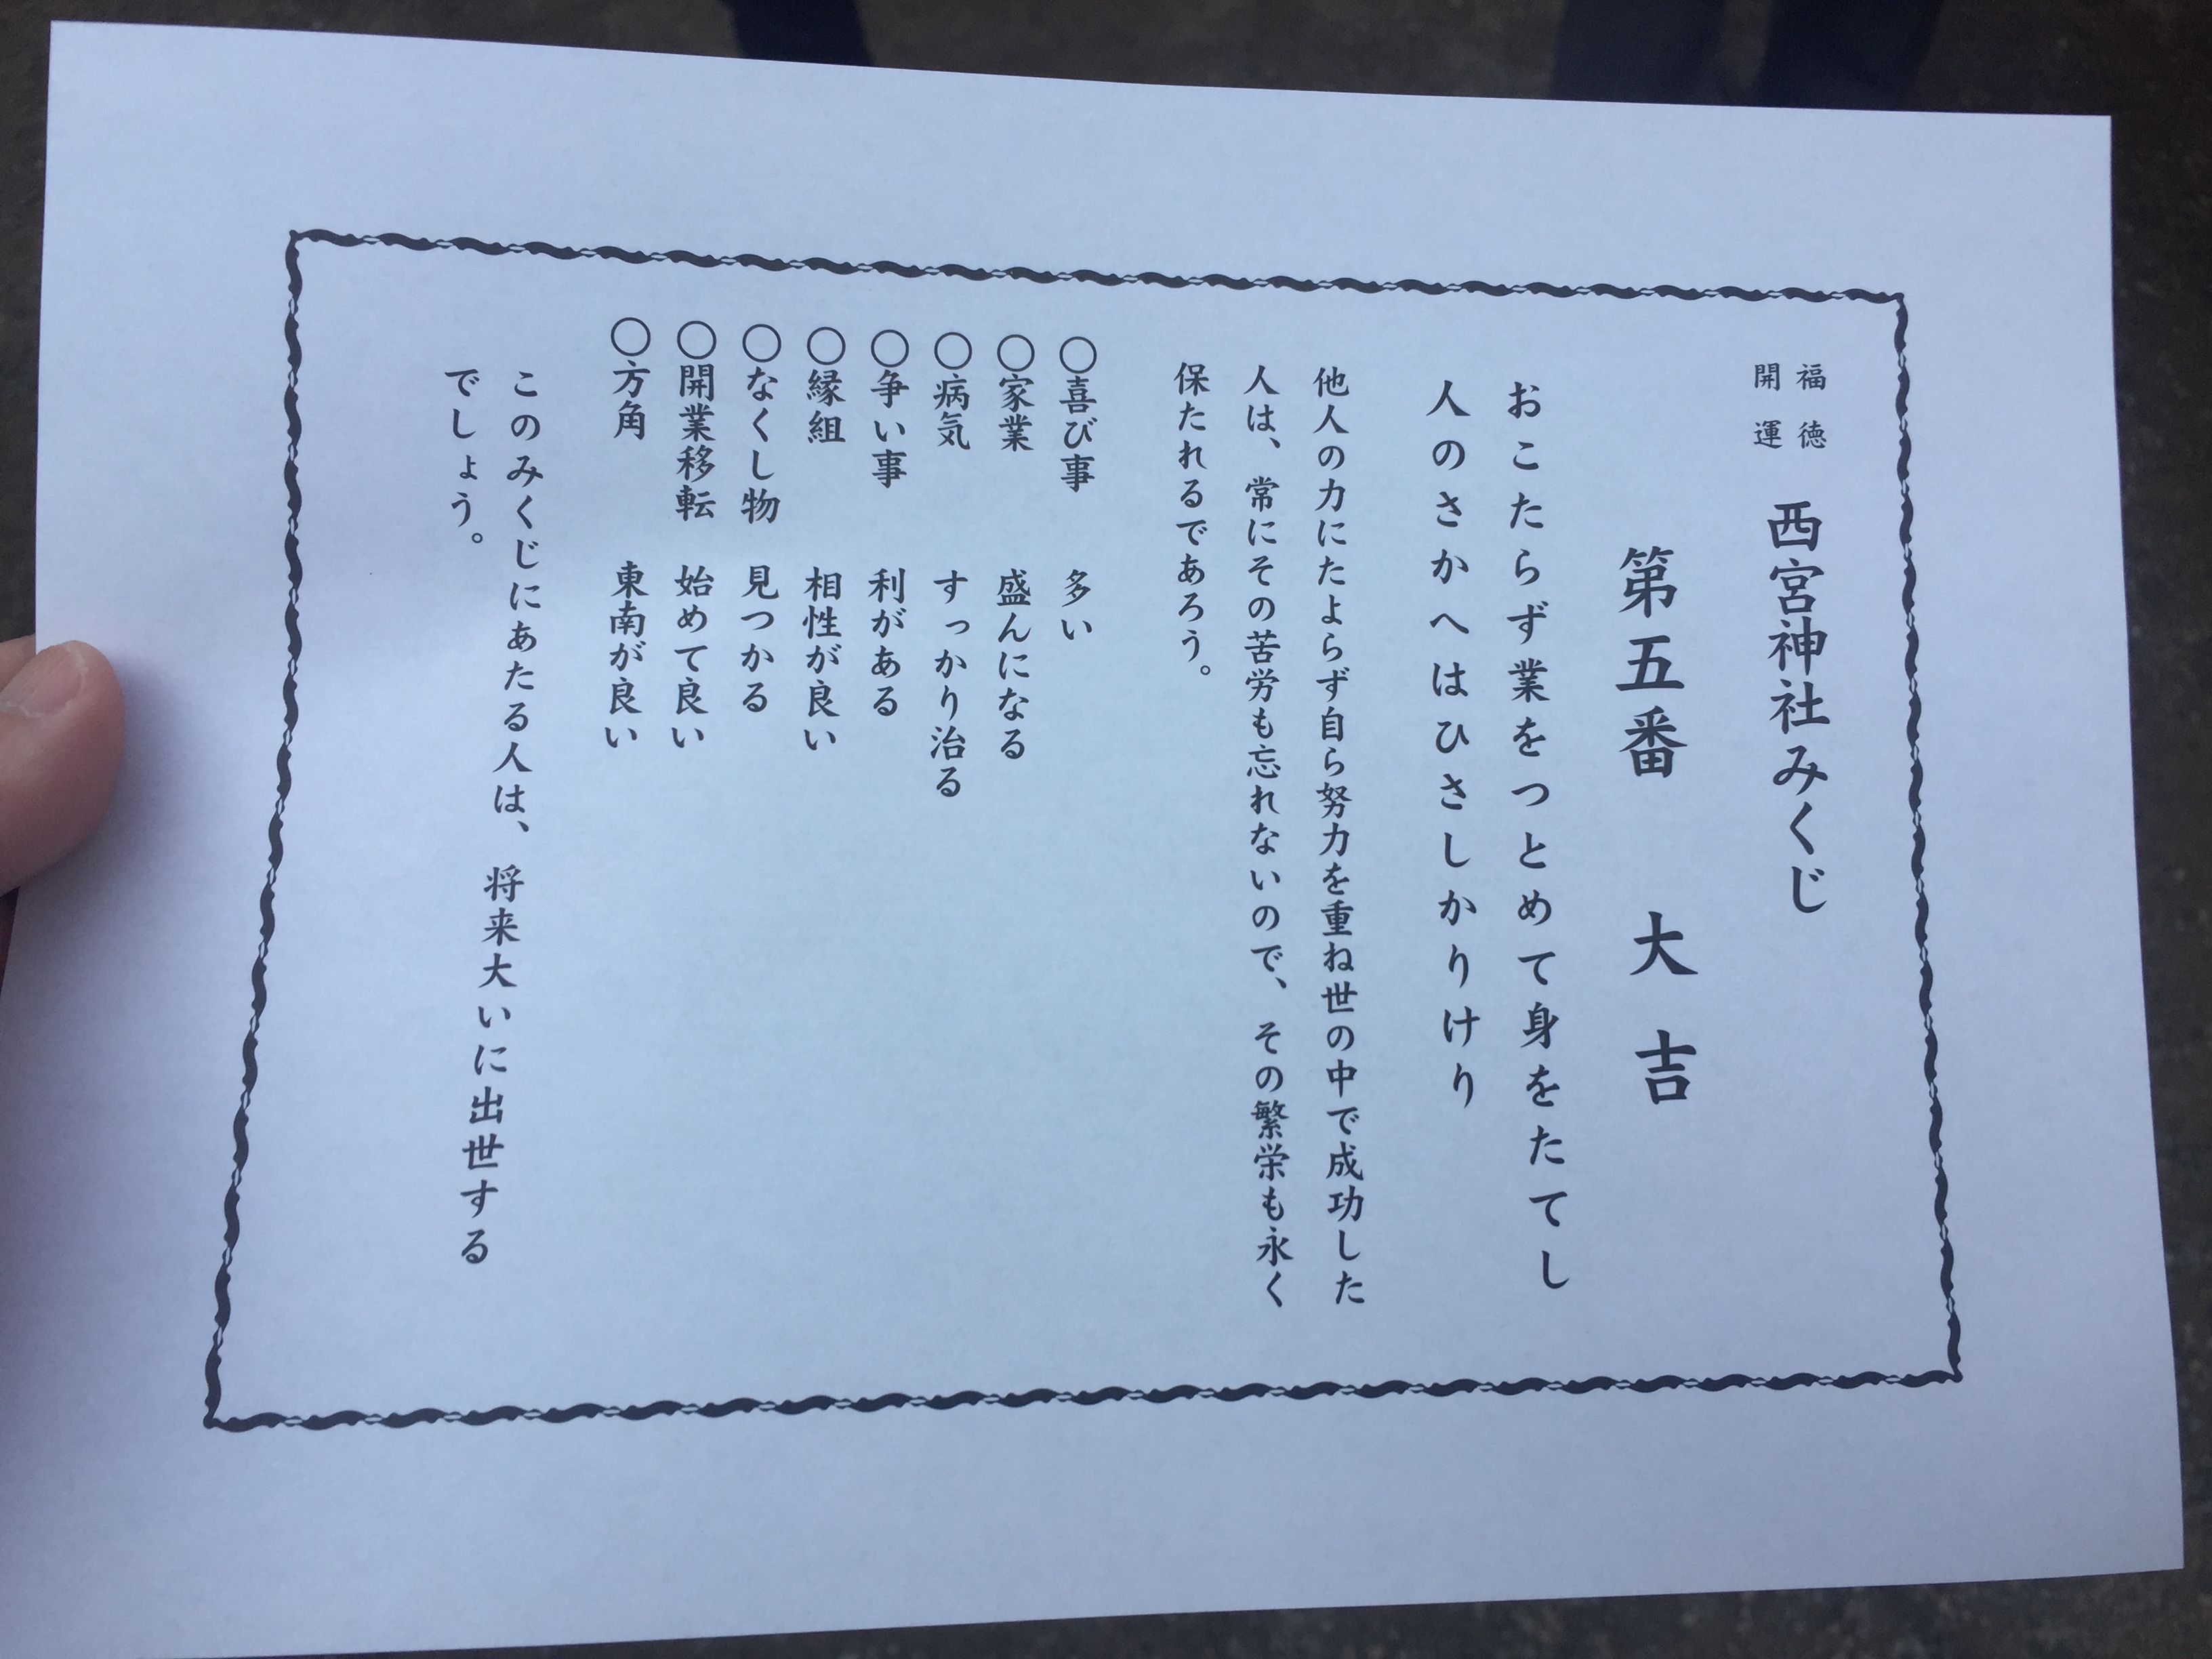 福徳
開運
西宮神社みくじ
第五番 大吉
おこたらず業をつとめて身をたてし
人のさかへはひさしかりけり
他人の力にたよらず自ら努力を重ね世の中で成功した
人は、常にその苦労も忘れないので、その繁栄も永く
保たれるであろう。
○喜び事 多い
○家業 盛んになる
○病気 すっかり治る
○争い事 利がある
○縁組 相性が良い
○なくし物 見つかる
○開業移転 始めて良い
○方角 東南が良い
このみくじにあたる人は、将来大いに出世する
でしょう。